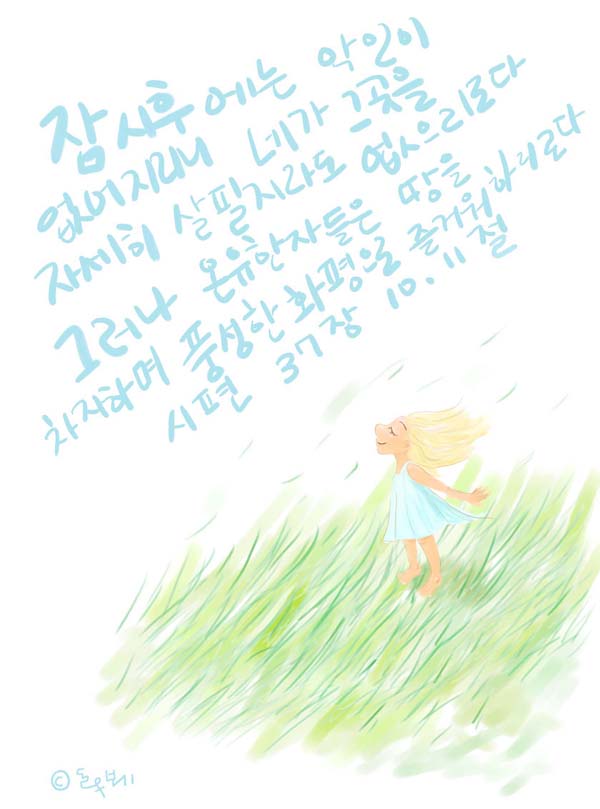 잠시후에는 악인이
없어지리니 네가 그곳을
자세히 살필지라도 없으리로다
그러나 온유한자들은 땅을
차지하며 풍성한 화평으로 즐거워하리로다
시편 37장 10.11절
©